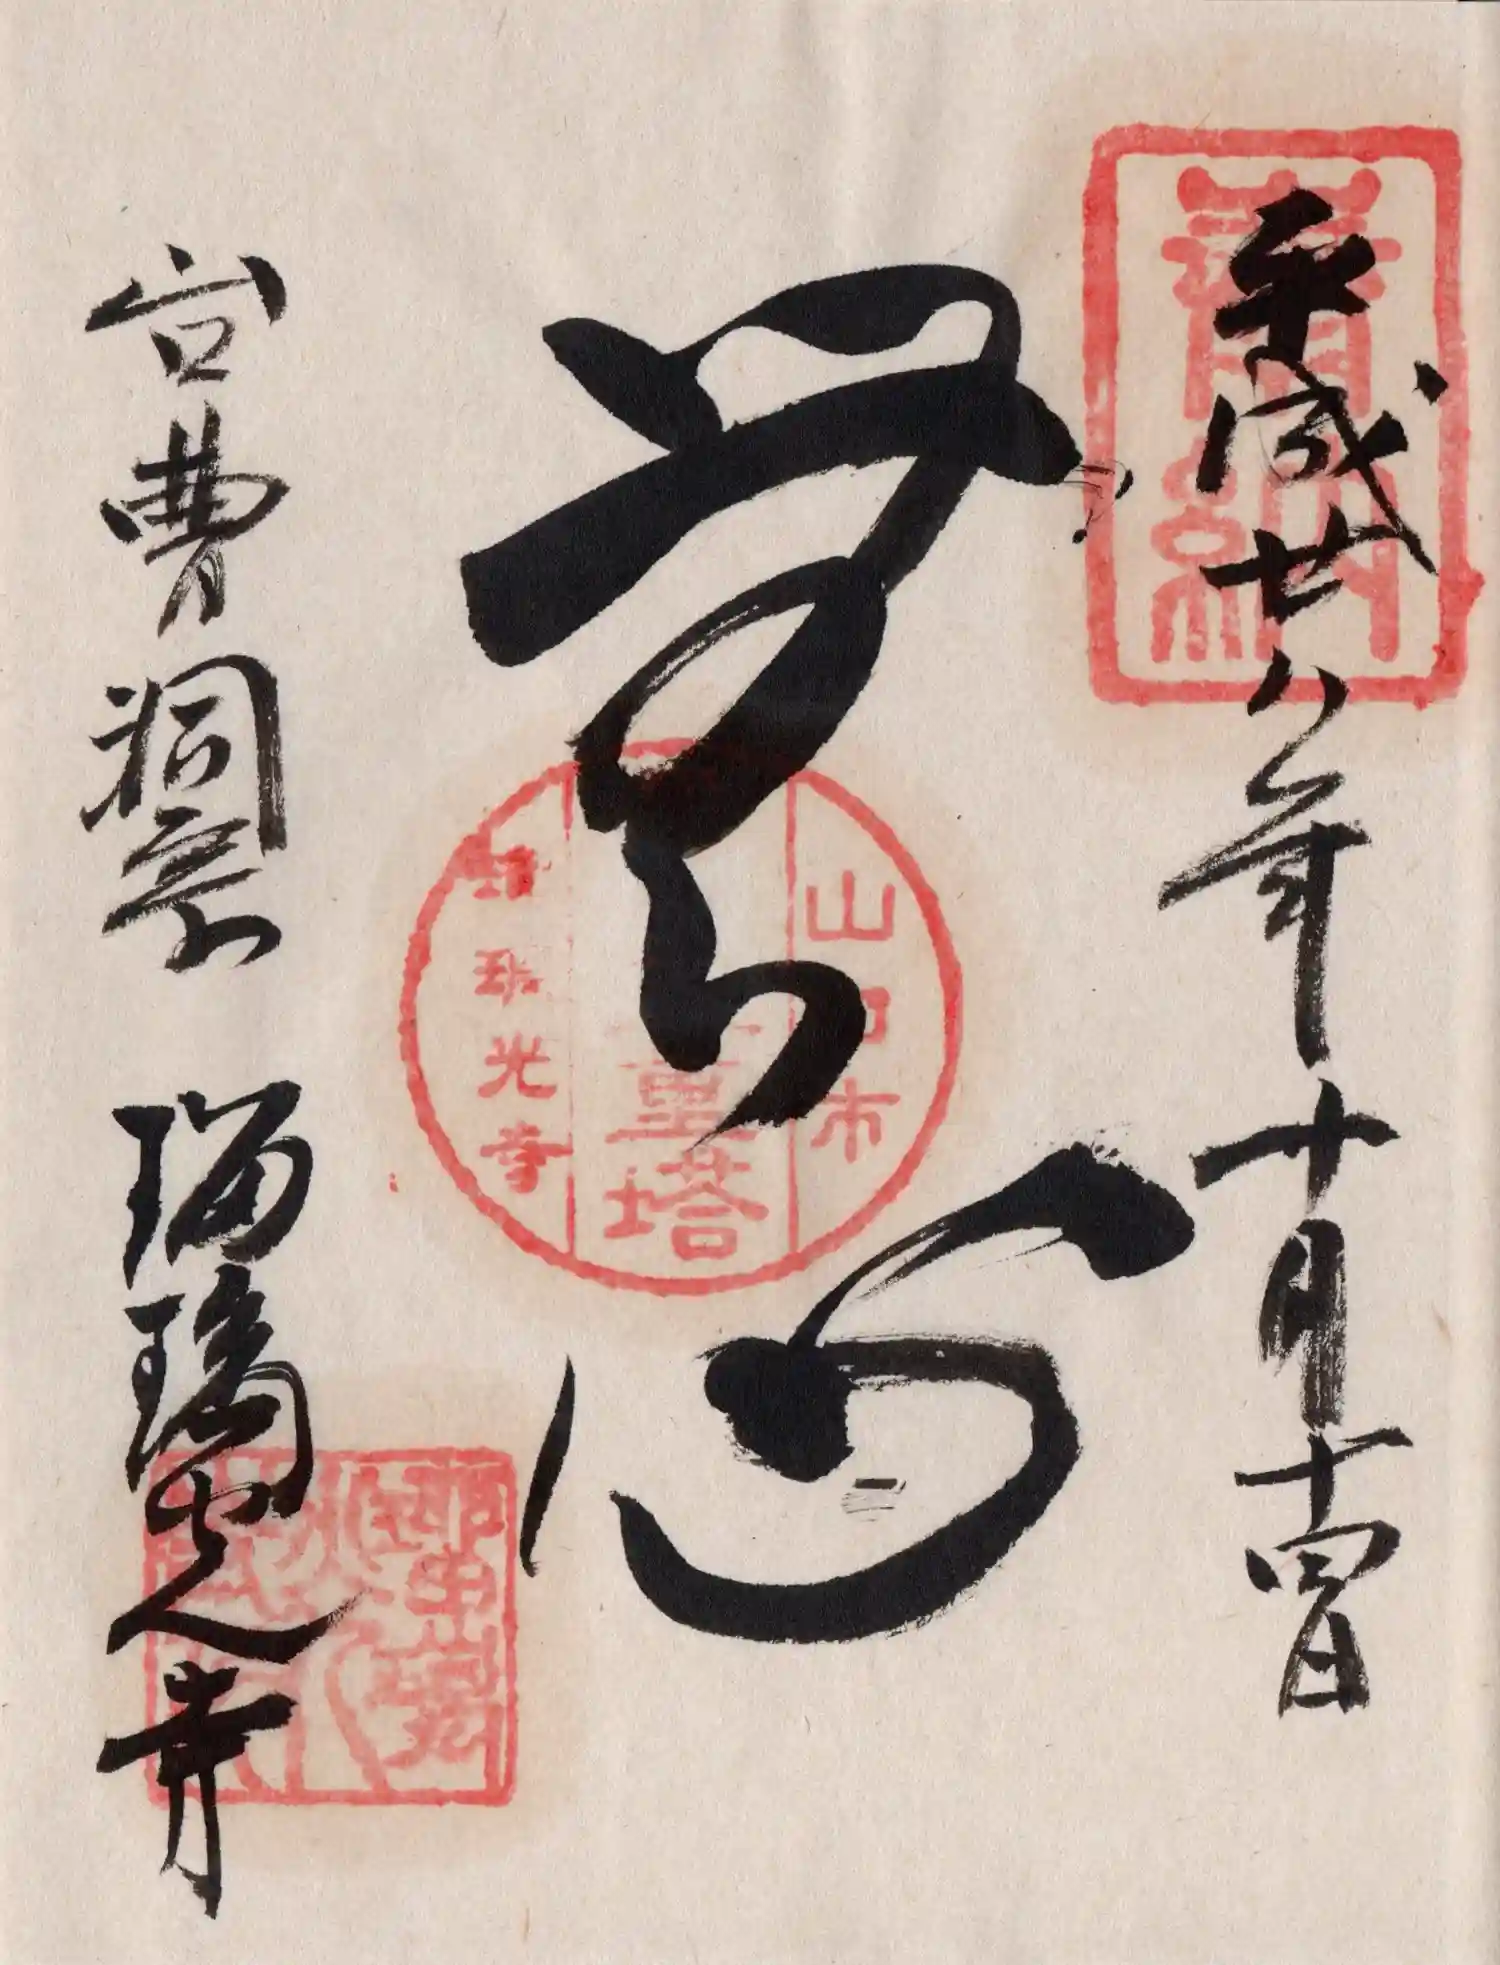 平成廿八年十月十四日
奉納
無心
山口市
重塔
瑠璃光寺
曹洞宗 瑠璃光寺